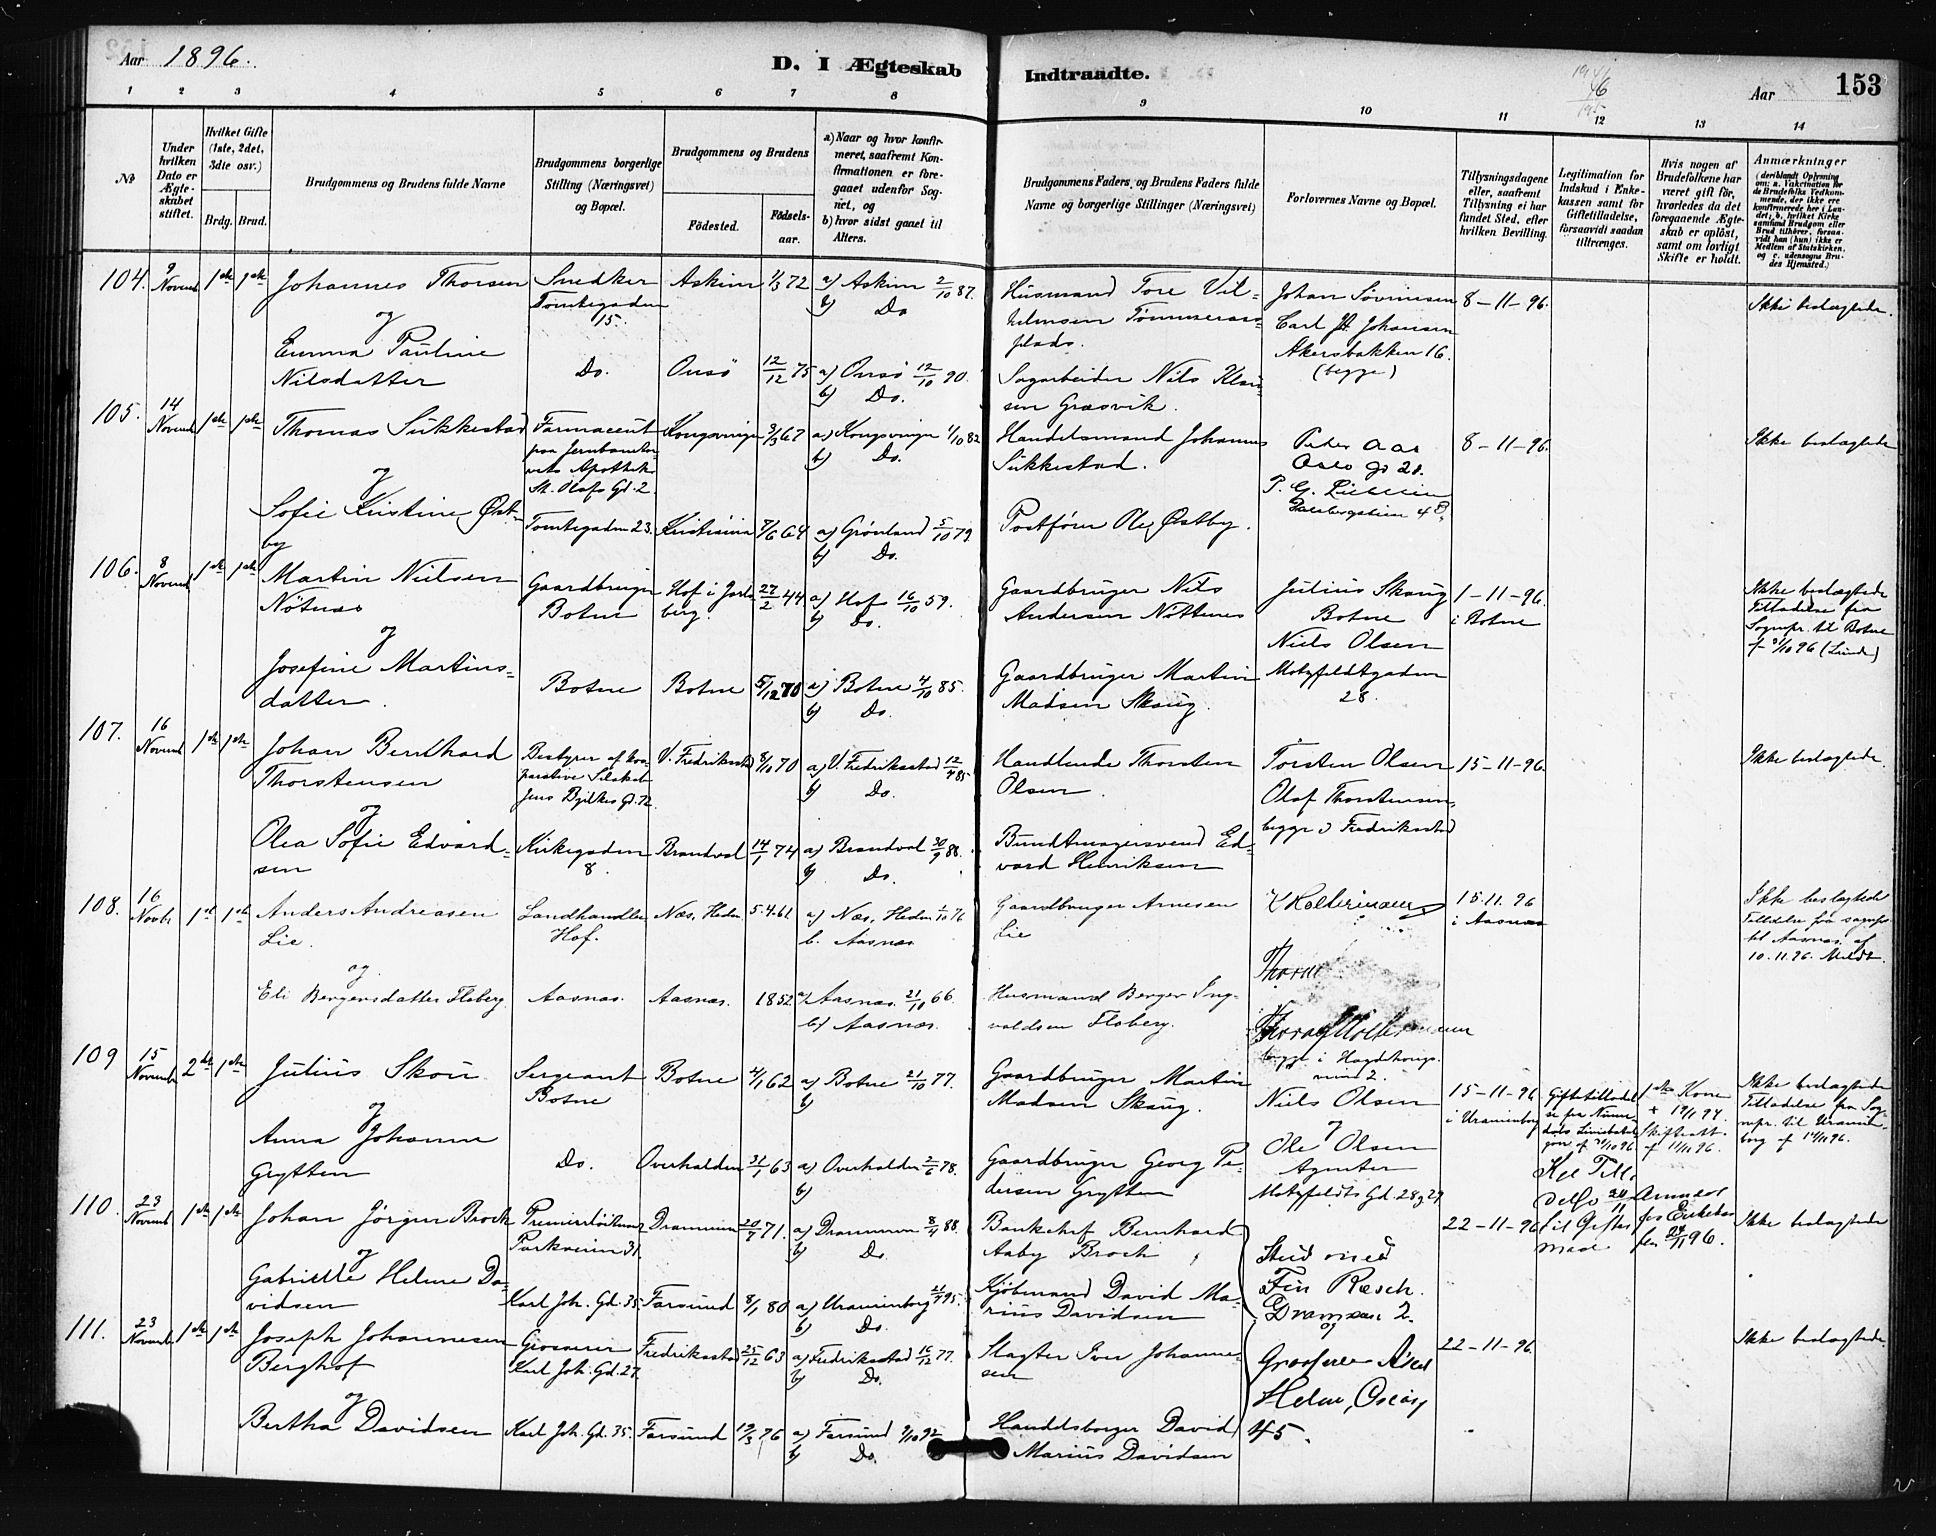 Aar 1896.
D. I Ægteskab Indtraadte.
Aar 153
1 2 3 4 5 6 7 8 9 10 11 12 13 14
№
Under hvilken Dato er Ægteskabet stiftet.
Hvilket Gifte (1ste, 2det, 3die osv.)
Brdg. Brud.
Brudgommens og Brudens fulde Navne
Brudgommens borgerlige Stilling (Næringsvei) og Bopæl.
Brudgommens og Brudens
Fødested. Fødsels-aar.
a) Naar og hvor konfirmeret, saafremt Konfirmationen er foregaaet udenfor Sognet, og
b) hvor sidst gaaet til Alters.
Brudgommens Faders og Brudens Faders fulde Navne og borgerlige Stillinger (Næringsvei)
Forlovernes Navne og Bopæl.
Tillysningsdagene eller, saafremt Tillysning ei har fundet Sted, efter hvilken Bevilling.
Legitimation for Indskud i Enkekassen samt for Giftetilladelse, forsaavidt saadan tiltrænges.
Hvis nogen af Brudefolkene har været gift før, hvorledes da det foregaaende Ægteskab er opløst, samt om lovligt Skifte er holdt.
Anmærkninger
104. 9 Novemb 1ste 1ste Johannes Thorsen Snedker Tomtegaden 15. Askim 1/3 72 a) Askim 2/10 87. b) Do
Husmand Tore Vilhelmsen Tømmeraas plads. Johan Sørensen Carl Johansen Akersbakken 16. (begge) 8-11-96. Ikke beslægtede.
og
Emma Pauline Nilsdatter Do. Onsø 12/12 75 a) Onsø 12/10 90. b) Do.
Sagarbeider Nils Græsvik.
105. 14 Novemb 1ste 1ste Thomas Sukkestad Farmaceut paa Jernbanetorvets Apothek St. Olafs Gd. 2. Kongsvinger 3/3 67 a) Kongsvinger 1/10 82 b) Do.
Handelsmand Johannes Sukkestad. Peder Aas Oslo gd 28. 8-11-96. Ikke beslægtede
og
Sofie Kristine Østby Tomtegaden 23. Kristiania 7/6 64 a) Grønland 5/10 79. b) Do.
Postfører Ole Østby.
106. 8 Novemb 1ste 1ste Martin Nielsen Nøtnæs Gaardbruger Botne Hof i Jarlsberg. 27/2 44 a) Hof 16/10 59. b) Do.
Gaardbruger Nils Andersen Nøttenes Julius Skaug Botne Niels Olsen Motzfeldtsgaden 28. 1-11-96. i Botne
Ikke beslægtede Tilladelse fra Sognepr. til Botne af 31/10 96 (Linde)
og
Josefine Martinsdatter. Botne Botne 5/12 70 a) Botne 4/10 85. b) Do.
Gaardbruger Martin Madsen Skaug.
107. 16 Novemb 1ste 1ste Johan Bernhard Thorstensen Bestyrer af Jens Bjelkes Gd. 72. V. Fredrikstad 8/10 70 a) V. Fredriksstad 12/4 85 b) Do.
Handlende Thorsten Olsen. Torsten Olsen Olaf Thorstensen, begge i Fredriksstad 15-11-96. Ikke beslægtede
og
Olea Sofie Edvardsen Kirkegaden 8. Brandval 14/1 74 a) Brandval 30/9 88. b) Do.
Bundtmagersvend Edvard Henriksen
108. 16 Novbr 1st 1ste Anders Andreasen Lie. Landhandler Hof. Næs, Hedm. 5.4.61 a) Næs, Hedm 1/10 76 b. Aasnæs
Gaardbruger Arnesen Lie 15.11.96 i Aasnæs
Ikke beslægtede Tilladelse fra sognepr. til Aasnæs af 10.11.96.
og.
Eli Bergersdatter Floberg. Aasnæs. Aasnæs. 1852 a) Aasnæs. 21/10 66. b) Aasnæs.
Husmand Berger Ingvaldsen Floberg. Thorv
begge i
109 15 Novemb 2det 1ste Julius Skou Sergeant Botne Botne 4/1 62 a) Botne 21/10 77. b)
Gaardbruger Martin Madsen Skaug. Niels Olsen 15-11-96 i Uranienborg
1ste Kone
Ikke beslægtede Tilladelse fra Sognepr. til Uranienborg af 14/11 96.
og
Anna Johanna Grytten Do. Overhalden 31/1 63 a) Overhalden 2/6 78. b)
Gaardbruger Georg Pedersen Grytten og Ole Olsen Agenter Motzfeldts Gd. 28 & 29
110. 23 Novemb 1ste 1ste Johan Jörgen Broch Premierløitnant Parkveien 31. Drammen 20/7 71. a) Drammen 8/4 88. b) Do.
Bankchef Bernhard Aaby Broch Stud med Fin Ræsch. Drammensv 2. 22-11-96 Ikke beslægtede
og
Gabrielle Helene Davidsen Karl Joh. Gd. 35. Farsund 8/1 80 a) Uranienborg 95. b) Do.
Kjøbmand David Marius Davidsen
111. 23 Novemb 1ste 1ste Joseph Johannesen Berghof Grosserer Karl Joh. Gd. 27. Fredriksstad 25/12 63 a) Fredriksstad 16/12 77. b) Do.
Slagter Iver Johannesen og Grosserer Axel Helm, Oscarsg 45. 22-11-96. Ikke beslægtede.
og
Bertha Davidsen Karl Joh. Gd. 35. Farsund 19/3 76 a) Farsund 9/10 92 b) Do.
Handelsborger David Marius Davidsen